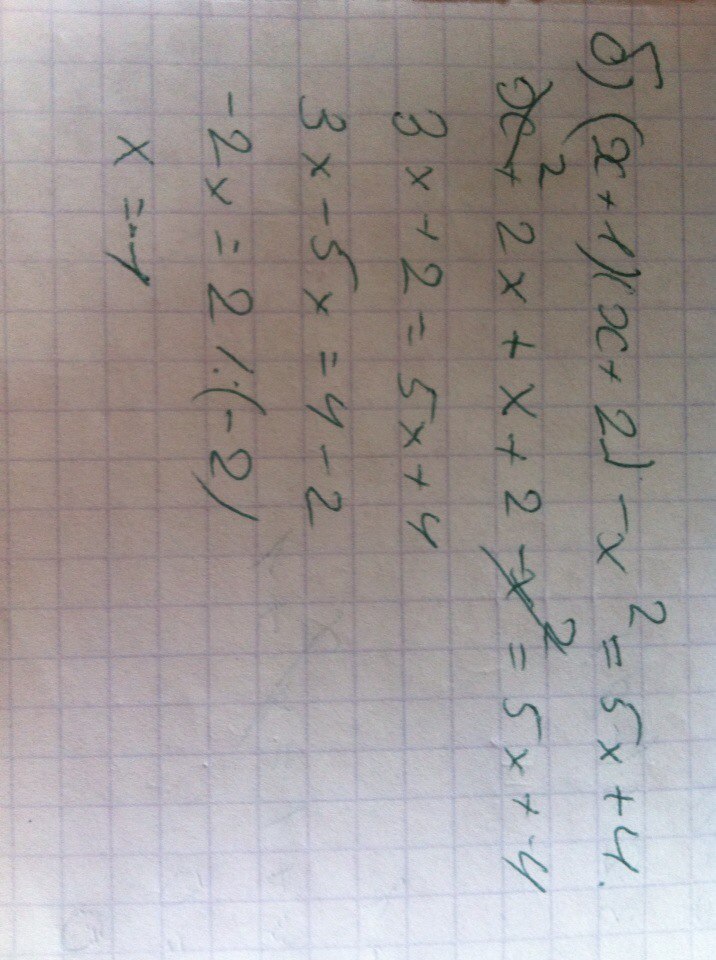 б) (x+1)(x+2)-x²=5x+4.
x²+2x+x+2-x²=5x+4
3x+2=5x+4
3x-5x=4-2
-2x=2 /:(-2)
x=-1